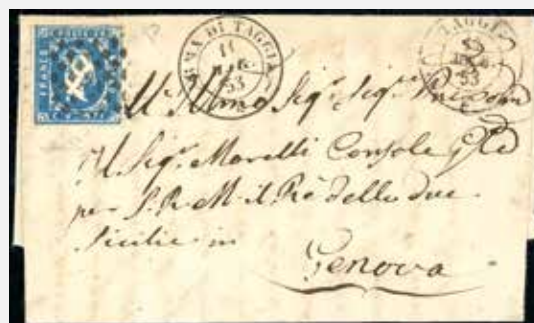 FRANCO
ARMA DI TAGGIA
11
53
TAGGIA
53
All' Illmo Sigr. Sigr.
Il Sigr. Morelli Console Gle
per S. R. M. il Rè delle due
Sicilie in
Genova